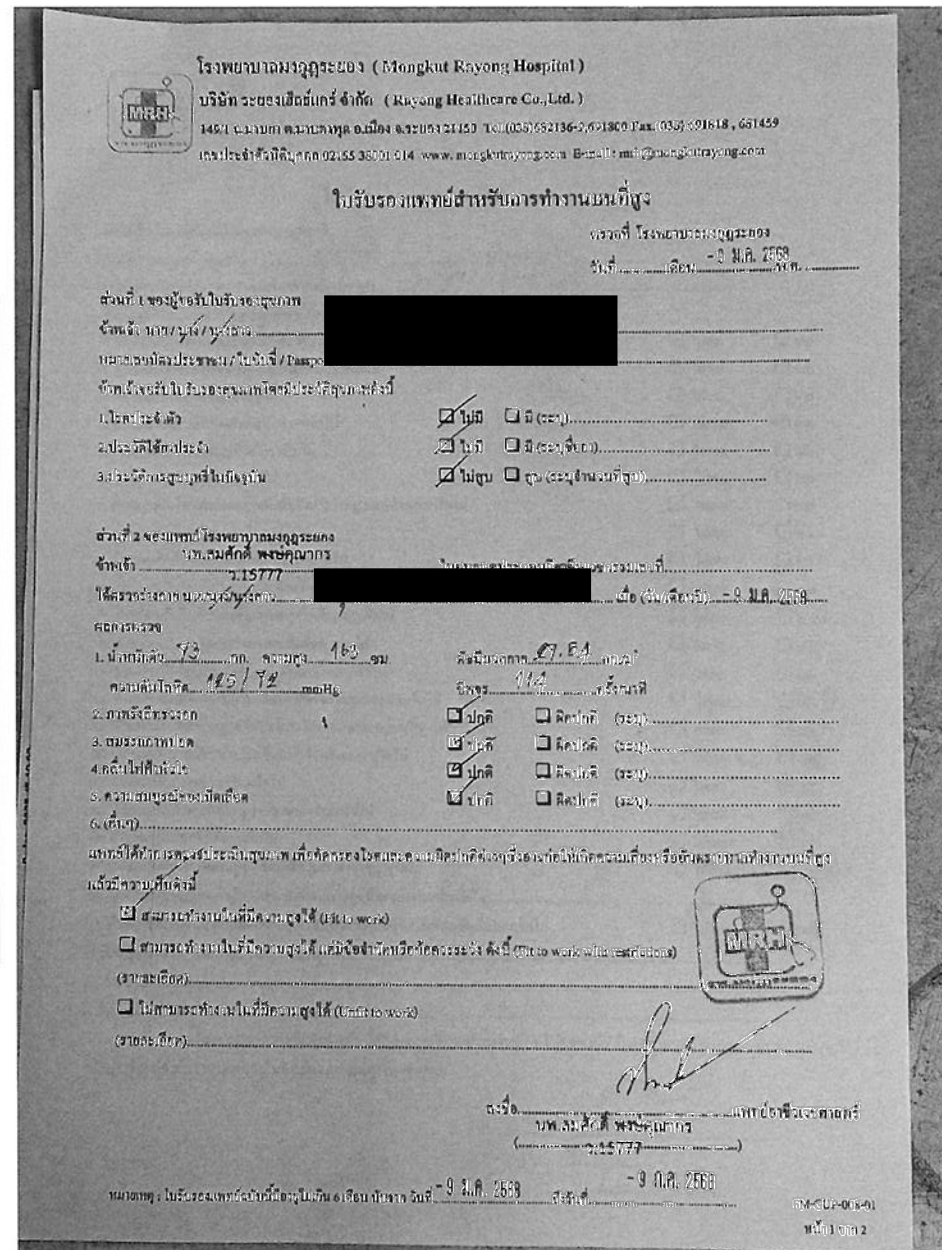 โรงพยาบาลมงกุฎระยอง ( Mongkut Rayong Hospital )
MRH
บริษัท ระยองเฮ็ลธ์แคร์ จำกัด ( Rayong Healthcare Co.,Ltd. )
149/1 ถ.มาบยา ต.มาบตาพุด อ.เมือง จ.ระยอง 21150 Tel.(038)682136-9,691800 Fax.(038) 691818 , 681459
www. mongkutrayong.com E-mail : mrh@mongkutrayong.com
ใบรับรองแพทย์สำหรับการทำงานบนที่สูง
ตรวจที่ โรงพยาบาลมงกุฎระยอง
วันที่..........เดือน - 9 ม.ค. 2568 พ.ศ. ..........
ส่วนที่ 1 ของผู้ขอรับใบรับรองสุขภาพ
ข้าพเจ้า นาย / นาง / นางสาว
หมายเลขบัตรประชาชน / ใบขับขี่ / Passpo
ข้าพเจ้าขอรับใบรับรองสุขภาพโดยมีประวัติสุขภาพดังนี้
1.โรคประจำตัว ไม่มี มี (ระบุ)
2.ประวัติใช้ยาประจำ ไม่มี มี (ระบุชื่อยา)
3.ประวัติการสูบบุหรี่ในปัจจุบัน ไม่สูบ สูบ (ระบุจำนวนที่สูบ)
ส่วนที่ 2 ของแพทย์ โรงพยาบาลมงกุฎระยอง
นพ.สมศักดิ์ พงษ์คุณากร
ข้าพเจ้า
ว.15777
ได้ตรวจร่างกาย นาย/นาง/นางสาว เมื่อ (วัน/เดือน/ปี) - 9 ม.ค. 2568
ผลการตรวจ
1. น้ำหนักตัว 73 กก. ความสูง 163 ซม ดัชนีมวลกาย
ความดันโลหิต mmHg ชีพจร ครั้ง/นาที
2. ภาพรังสีทรวงอก ปกติ ผิดปกติ (ระบุ)
3. สมรรถภาพปอด ปกติ ผิดปกติ (ระบุ)
4.คลื่นไฟฟ้าหัวใจ ปกติ ผิดปกติ (ระบุ)
5. ความสมบูรณ์ของเม็ดเลือด ปกติ ผิดปกติ (ระบุ)
6. (อื่นๆ)
แพทย์ได้ทำการตรวจประเมินสุขภาพ เพื่อคัดกรองโรคและความผิดปกติต่างๆซึ่งอาจก่อให้เกิดความเสี่ยงหรืออันตรายจากทำงานบนที่สูง
แล้วมีความเห็นดังนี้
สามารถทำงานในที่มีความสูงได้ (Fit to work)
สามารถทำงานในที่มีความสูงได้ แต่มีข้อจำกัดหรือข้อควรระวัง ดังนี้ (Fit to work with restrictions)
MRH
(รายละเอียด)
ไม่สามารถทำงานในที่มีความสูงได้ (Unfit to work)
(รายละเอียด)
ลงชื่อ แพทย์อาชีวเวชศาสตร์
นพ.สมศักดิ์ พงษ์คุณากร
( ว.15777 )
หมายเหตุ : ใบรับรองแพทย์ฉบับนี้มีอายุไม่เกิน 6 เดือน นับจาก วันที่ - 9 ม.ค. 2568 ถึงวันที่ - 9 ก.ค. 2568
FM-CUP-008-01
หน้า 1 จาก 2